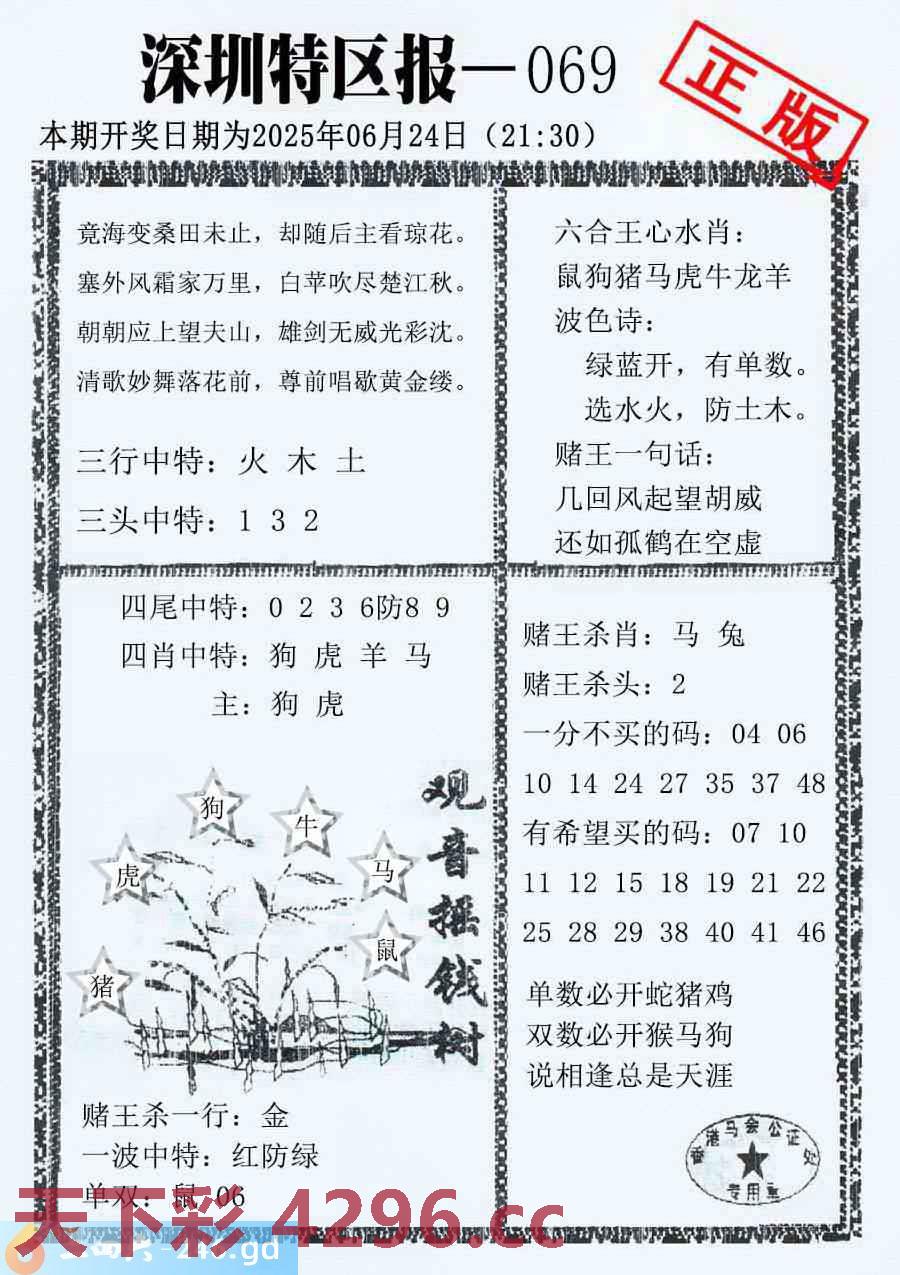 深圳特区报—069
正版
本期开奖日期为2025年06月24日（21:30）
竟海变桑田未止，却随后主看琼花。
塞外风霜家万里，白苹吹尽楚江秋。
朝朝应上望夫山，雄剑无威光彩沈。
清歌妙舞落花前，尊前唱歇黄金缕。
三行中特：火 木 土
三头中特：1 3 2
六合王心水肖：
鼠狗猪马虎牛龙羊
波色诗：
绿蓝开，有单数。
选水火，防土木。
赌王一句话：
几回风起望胡威
还如孤鹤在空虚
四尾中特：0 2 3 6防8 9
四肖中特：狗 虎 羊 马
主：狗 虎
观音摇钱树
狗
牛
虎
马
鼠
猪
赌王杀一行：金
一波中特：红防绿
单双：鼠 06
赌王杀肖：马 兔
赌王杀头：2
一分不买的码：04 06
10 14 24 27 35 37 48
有希望买的码：07 10
11 12 15 18 19 21 22
25 28 29 38 40 41 46
单数必开蛇猪鸡
双数必开猴马狗
说相逢总是天涯
香港马会公证处
专用章
天下彩 4296.cc